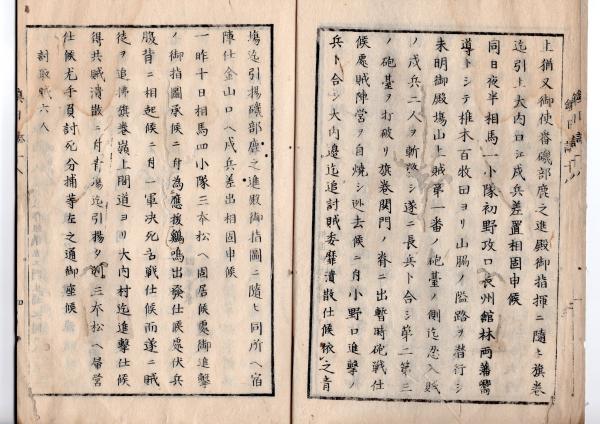 上猶又御使番磯部鹿之進殿御指揮ニ随ヒ旗巻
迄引上大内口江戍兵差置相固申候
同日夜半相馬一小隊初野攻口長州館林両藩嚮
導トシテ椎木百牧田ヨリ山腸ノ隘路ヲ潜行シ
未明御殿場山上賊第一番ノ砲臺ノ側迄忍入賊
ノ戍兵二人ヲ斬殪シ遂ニ長兵ト合シ第二第三
ノ砲臺ヲ打破リ旗巻関門ノ脊ニ出暫時砲戦仕
候處賊陣営ヲ自焼シ逃去候ニ付小野口進撃ノ
兵ト合シ大内邊迄追討賊委靡潰散仕候依之青
塲迄引揚磯部鹿之進殿御指圖ニ随ヒ同所ヘ宿
陣仕金山口ヘ戍兵差出相固申候
一昨十日相馬四小隊三本松ヘ固居候處御進撃
ノ御指圖承候ニ付為應援鷄鳴出發仕候處伏兵
腹背ニ相起候ニ付一軍決死苦戦仕候而遂ニ賊
徒ヲ追拂旗巻嶺上間道ヨリ大内村迄進撃仕候
得共賊潰散ニ付青塲迄引揚夕刻三本松ヘ屯営
仕候尤手負討死分捕等左之通御座候
討取賊六人